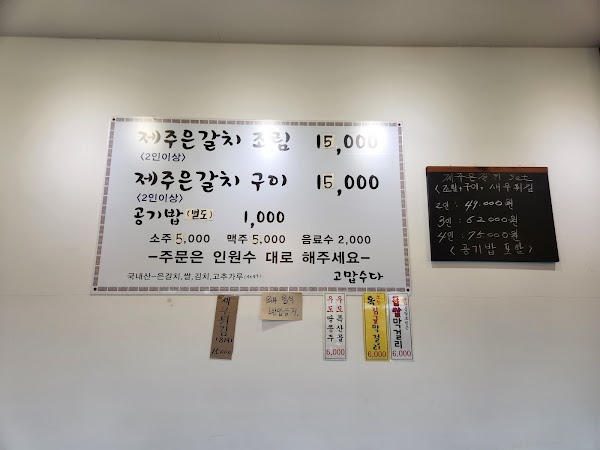 제주은갈치 조림 15,000
<2인이상>
제주은갈치 구이 15,000
<2인이상>
공기밥(별도) 1,000
소주 5,000 맥주 5,000 음료수 2,000
-주문은 인원수 대로 해주세요-
국내산-은갈치,쌀,김치,고추가루
고맙수다
제주은갈치 Set
<조림+구이, 새우튀김
2인 : 49.000원
3인 : 62000원
4인 : 75000원
<공기밥 포함>
새우튀김
15,000
외부 음식
우도특산물
우도땅콩주
6,000
막걸리
6,000
찹쌀막걸리
6,000